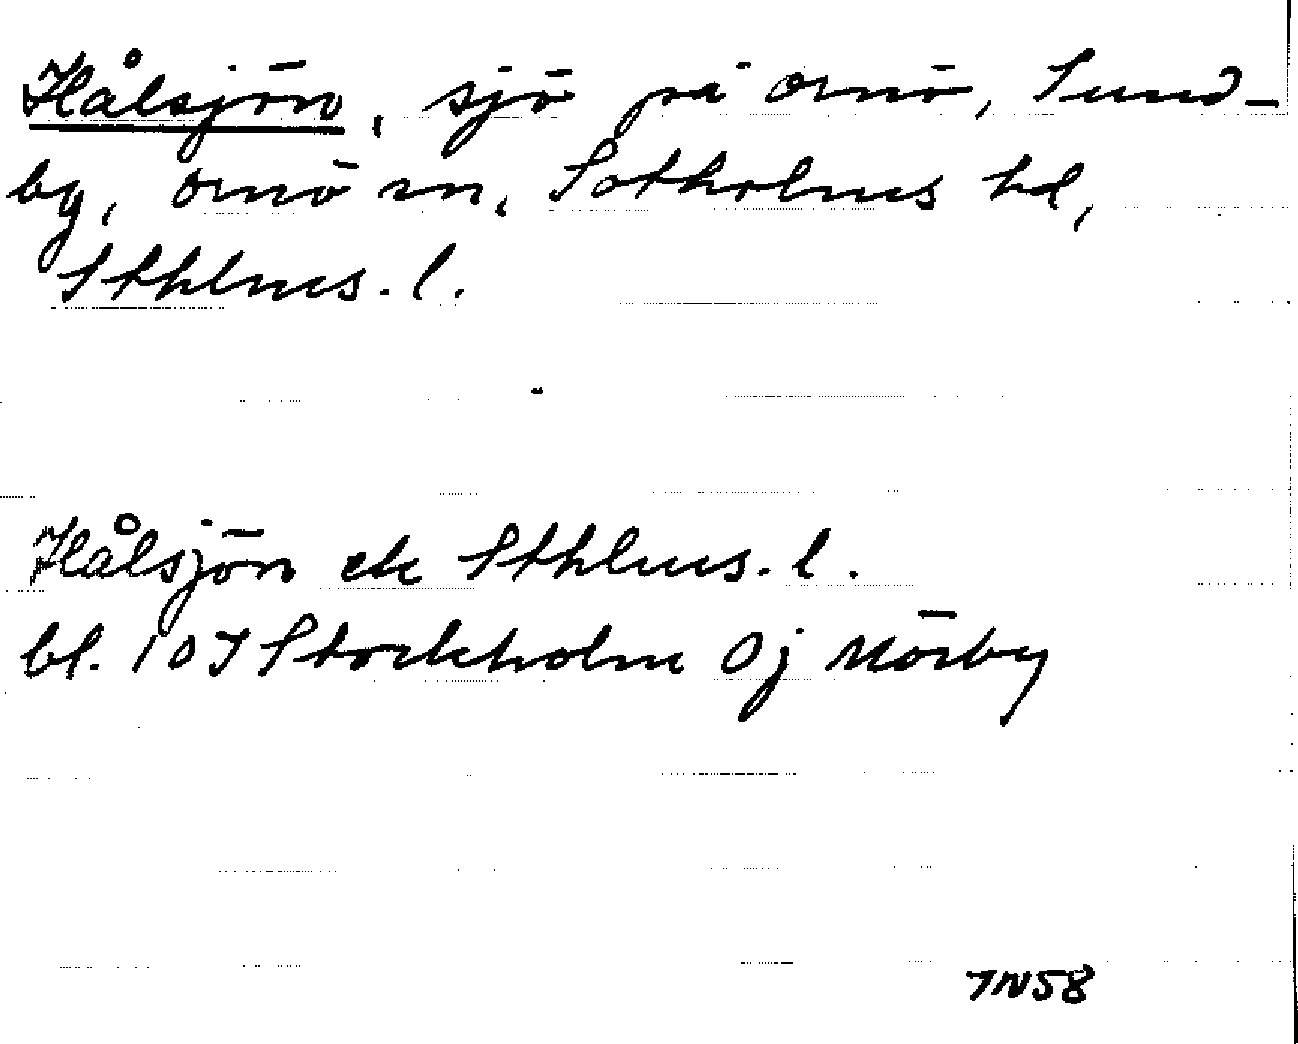 Hålsjön, sjö på Ornö, Sund-
by, Ornö sn, Sotholms hd,
Sthlms. l.
Hålsjön ek Sthlms. l.
bl. 10I Stockholm Oj Mörby
IN58